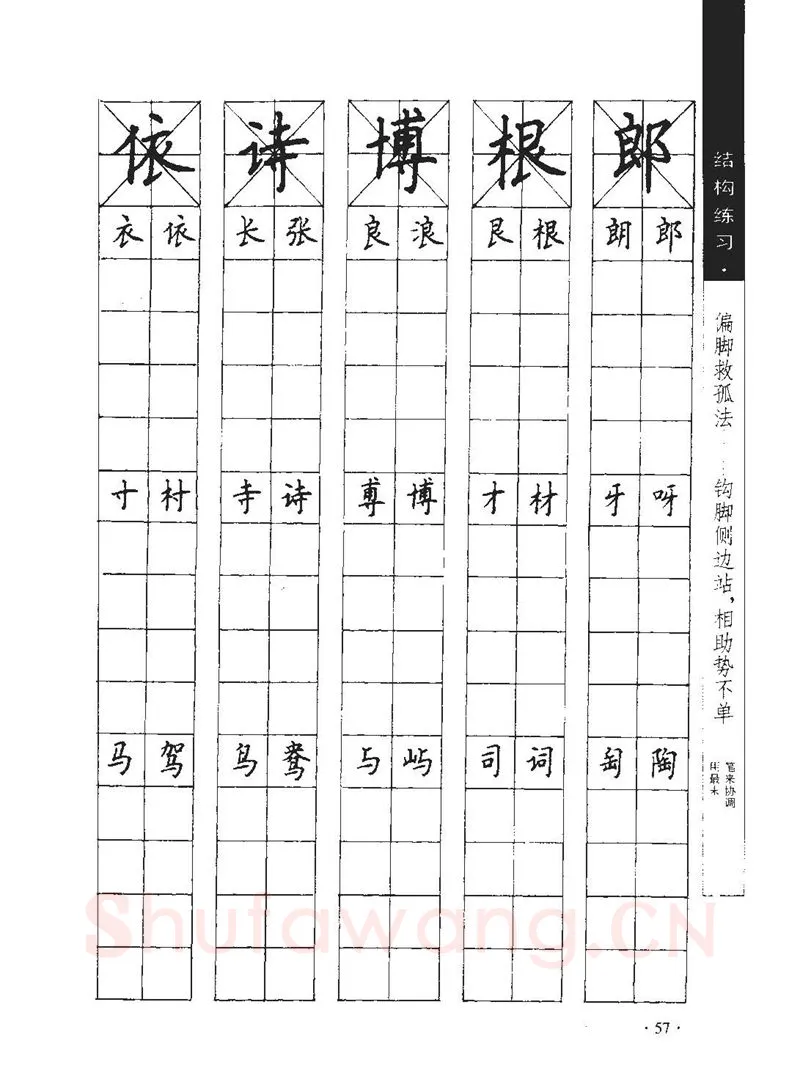 依 诗 博 根 郎
衣 依 长 张 良 浪 艮 根 朗 郎
寸 村 寺 诗 尃 博 才 材 牙 呀
马 驾 鸟 鸯 与 屿 司 词 匋 陶
结构练习·
偏脚救孤法
钩脚侧边站，相助势不单
用最末
笔来协调
Shufawang.CN
·57·